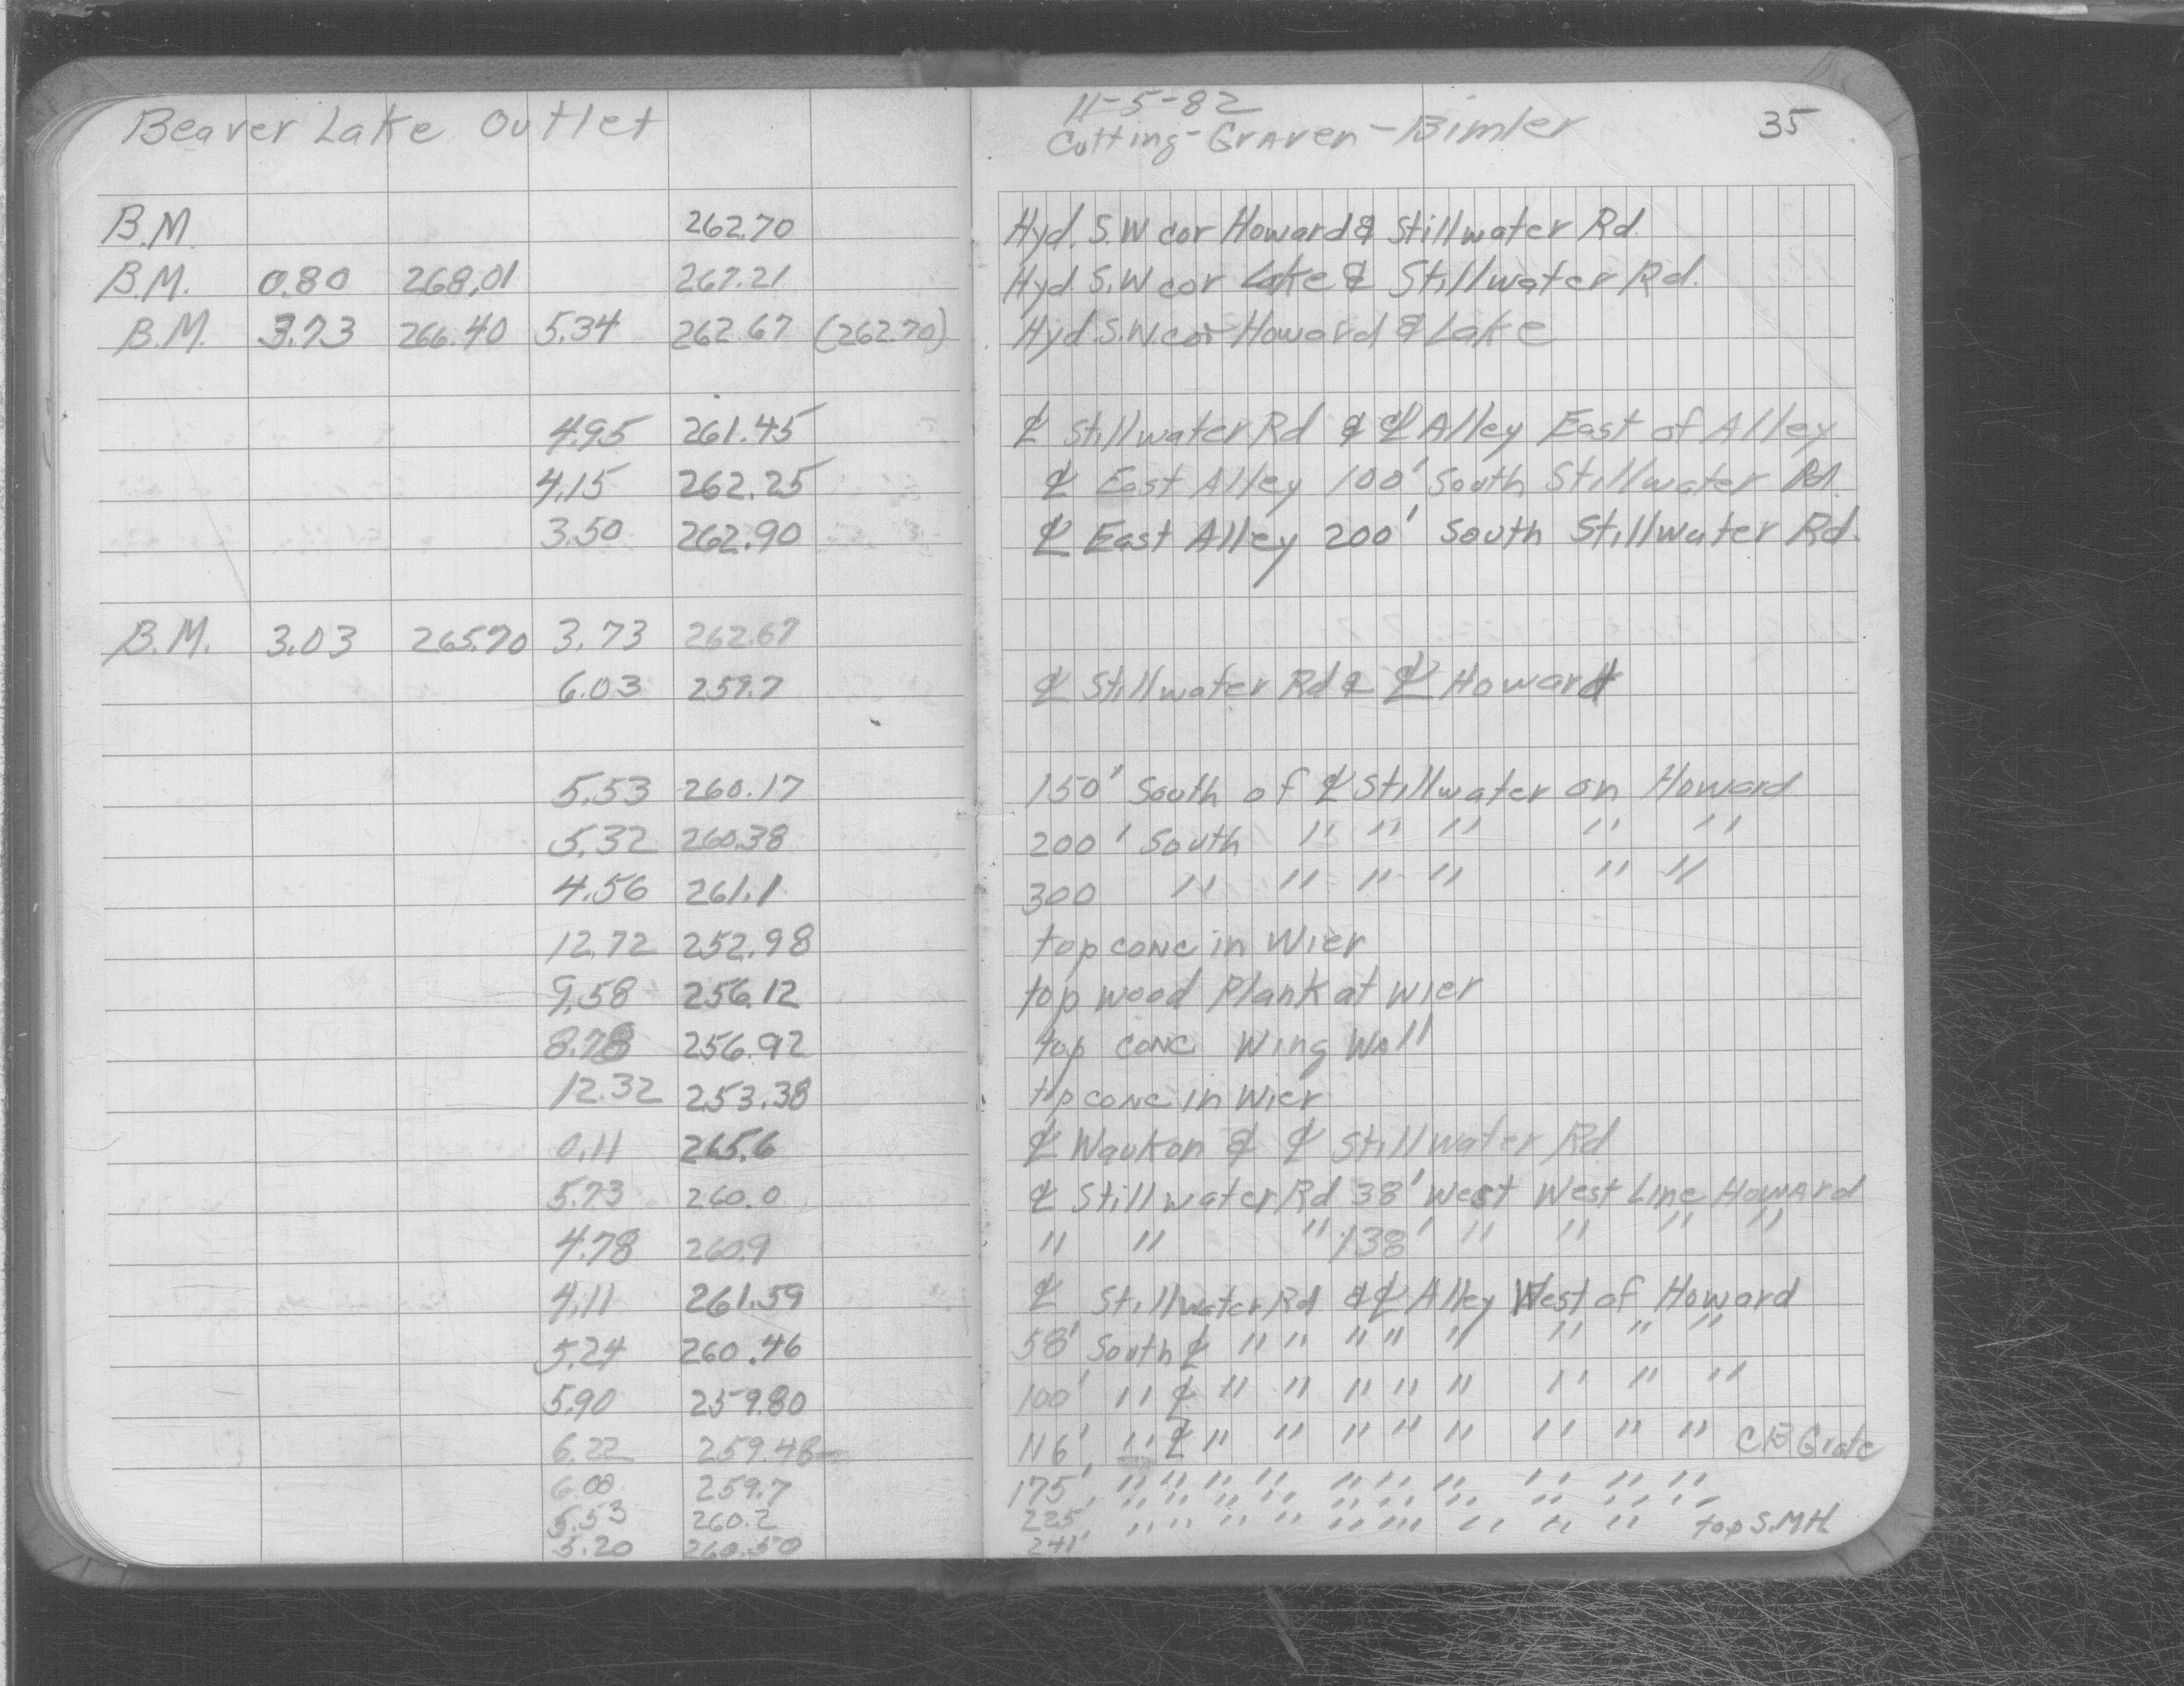 Beaver Lake Outlet
11-5-82
Cutting-Graven-Bimler 35
B.M. 262.70 Hyd. S.W cor Howard & Stillwater Rd.
B.M. 0.80 268.01 267.21 Hyd S.W cor Lake & Stillwater Rd.
B.M. 3.73 266.40 5.34 262.67 (262.70) Hyd. S.W. cor Howard & Lake
4.95 261.45 ℄ Stillwater Rd & ℄ Alley East of Alley
4.15 262.25 ℄ East Alley 100' South Stillwater Rd.
3.50 262.90 ℄ East Alley 200' South Stillwater Rd.
B.M. 3.03 265.70 3.73 262.67
6.03 259.7 ℄ Stillwater Rd & ℄ Howard
5.53 260.17 150' South of ℄ Stillwater on Howard
5.32 260.38 200' South " " " " "
4.56 261.1 300 " " " " " "
12.72 252.98 top conc in Wier
9.58 256.12 top wood Plank at wier
8.78 256.92 top conc Wing Wall
12.32 253.38 top conc in Wier
0.11 265.6 ℄ Waukon & ℄ Stillwater Rd
5.73 260.0 ℄ Stillwater Rd 38' West West Line Howard
4.78 260.9 " " " 138' " " " "
4.11 261.59 ℄ Stillwater Rd & ℄ Alley West of Howard
5.24 260.46 58' South ℄ " " " " " " " "
5.90 259.80 100' " ℄ " " " " " " " "
6.22 259.48 116' " ℄ " " " " " " " " CB Grate
6.00 259.7 175' " " " " " " " " " "
5.53 260.2 225 " " " " " " " " " "
5.20 260.50 241' " " " " " " " " " top S.MH